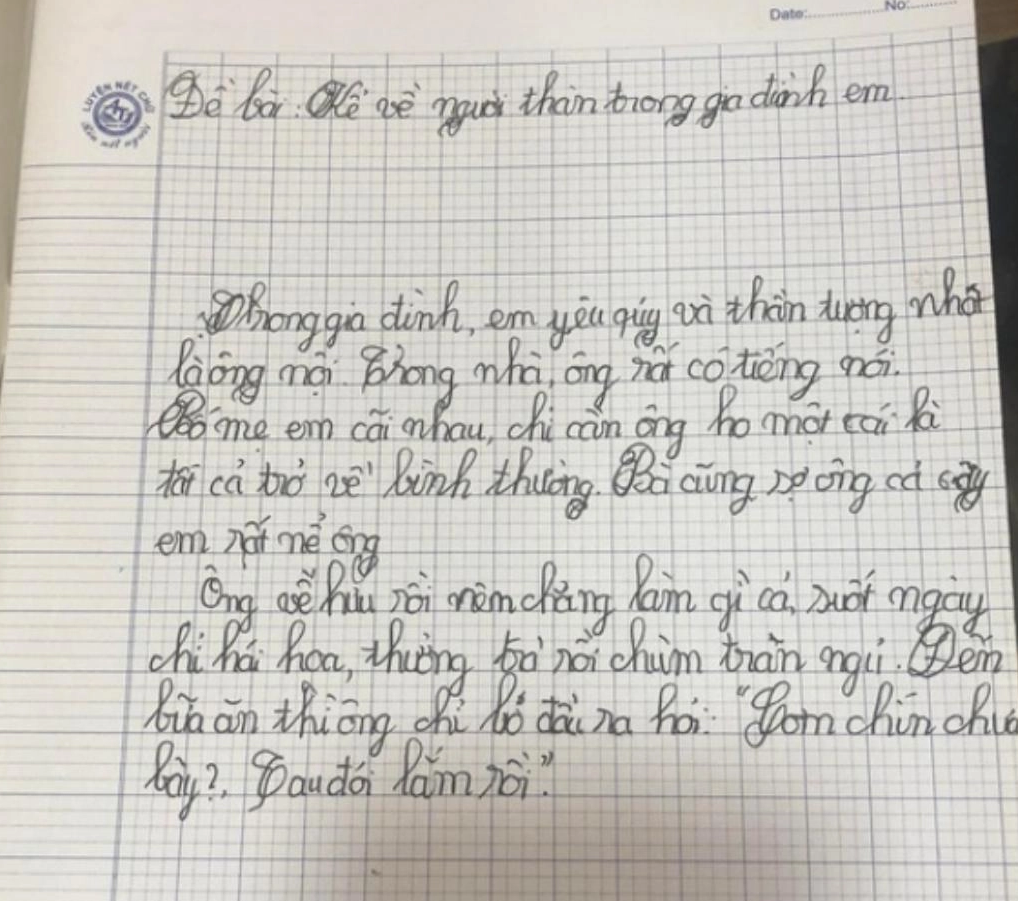 Date:............ No:..........
LUYỆN NÉT CHỮ
Rèn nết người
Đề bài: Kể về người thân trong gia đình em
Trong gia đình, em yêu qúy và thần tượng nhất
là ông nội. Trong nhà, ông rất có tiếng nói.
Bố mẹ em cãi nhau, chỉ cần ông ho một cái là
tất cả trở về bình thường. Bà cũng sợ ông
em rất nể ông
Ông về hưu rồi nên chẳng làm gì cả, suốt ngày
chỉ hái hoa, thưởng trà rồi chùm trăn ngủ. Đến
bữa ăn thì ông chỉ ló đầu ra hỏi: "Cơm chín chưa
bây?, Tau đói lắm rồi."